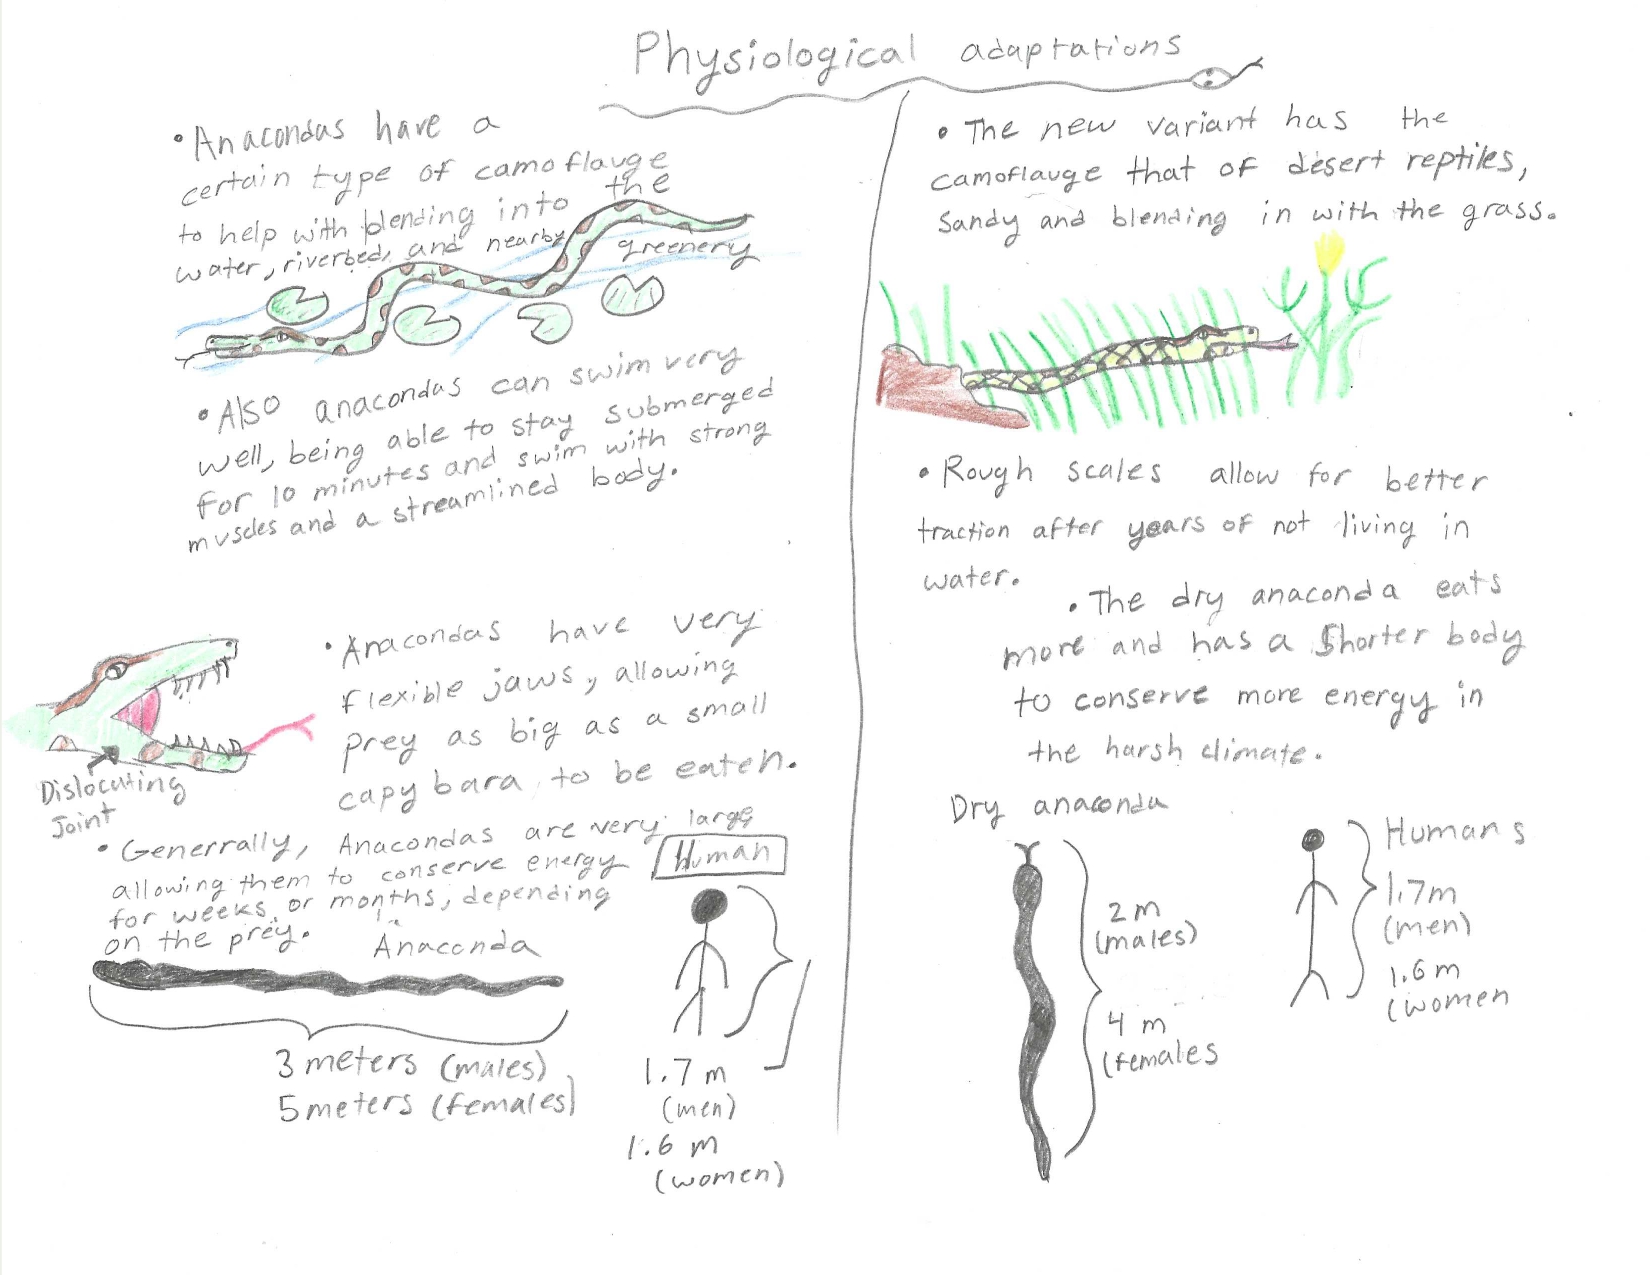 Physiological adaptations
• Anacondas have a
certain type of camoflauge
to help with blending into the
water, riverbed, and nearby greenery
• Also anacondas can swim very
well, being able to stay submerged
for 10 minutes and swim with strong
muscles and a streamlined body.
• Anacondas have very
flexible jaws, allowing
prey as big as a small
capybara, to be eaten.
Dislocating
Joint
• Generrally, Anacondas are very large
allowing them to conserve energy
for weeks or months, depending
on the prey.
Anaconda
3 meters (males)
5 meters (females)
Human
1.7 m
(men)
1.6 m
(women)
• The new variant has the
camoflauge that of desert reptiles,
sandy and blending in with the grass.
• Rough scales allow for better
traction after years of not living in
water.
• The dry anaconda eats
more and has a shorter body
to conserve more energy in
the harsh climate.
Dry anaconda
2 m
(males)
4 m
(females
Humans
1.7m
(men)
1.6 m
(women